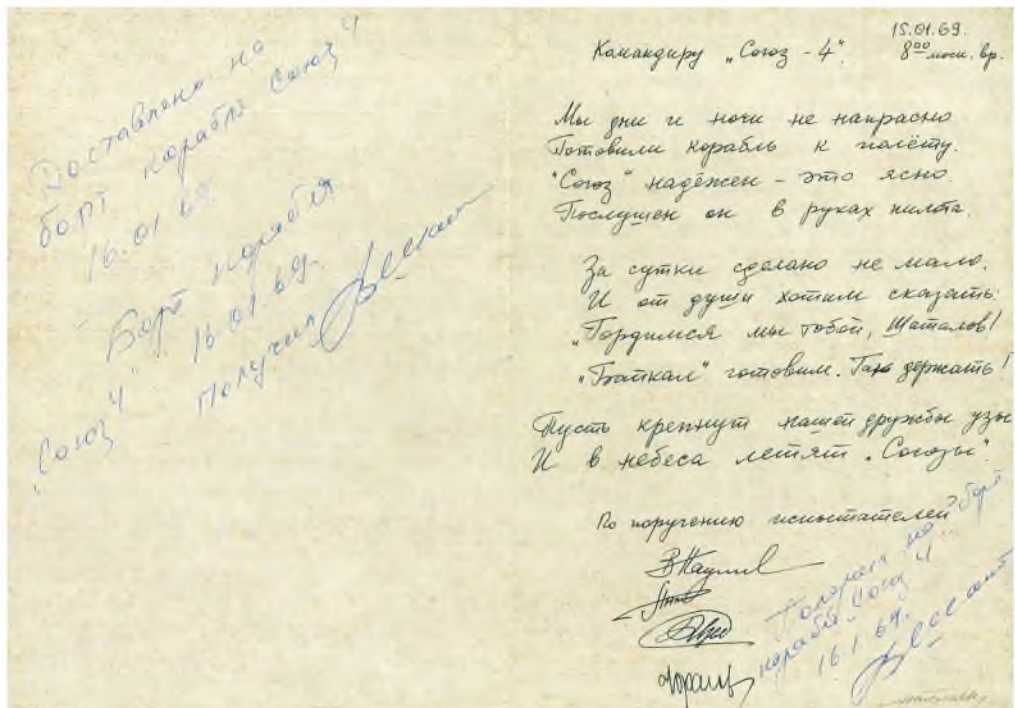 Доставлено на
борт корабля Союз 4
16.01 69.
Борт корабля
"Союз 4" 16 01.69.
Получил
15.01.69.
Командиру „Союз - 4".
8⁰⁰ моск. вр.
Мы дни и ночи не напрасно
Готовили корабль к полёту.
"Союз" надёжен - это ясно.
Послушен он в руках пилота.
За сутки сделано не мало.
И от души хотим сказать:
„Гордимся мы тобой, Шаталов!
„Байкал" готовим. Так держать!
Пусть крепнут нашей дружбы узы
И в небеса летят „Союзы".
По поручению испытателей
на борт
корабля Союз 4
16.1.69.